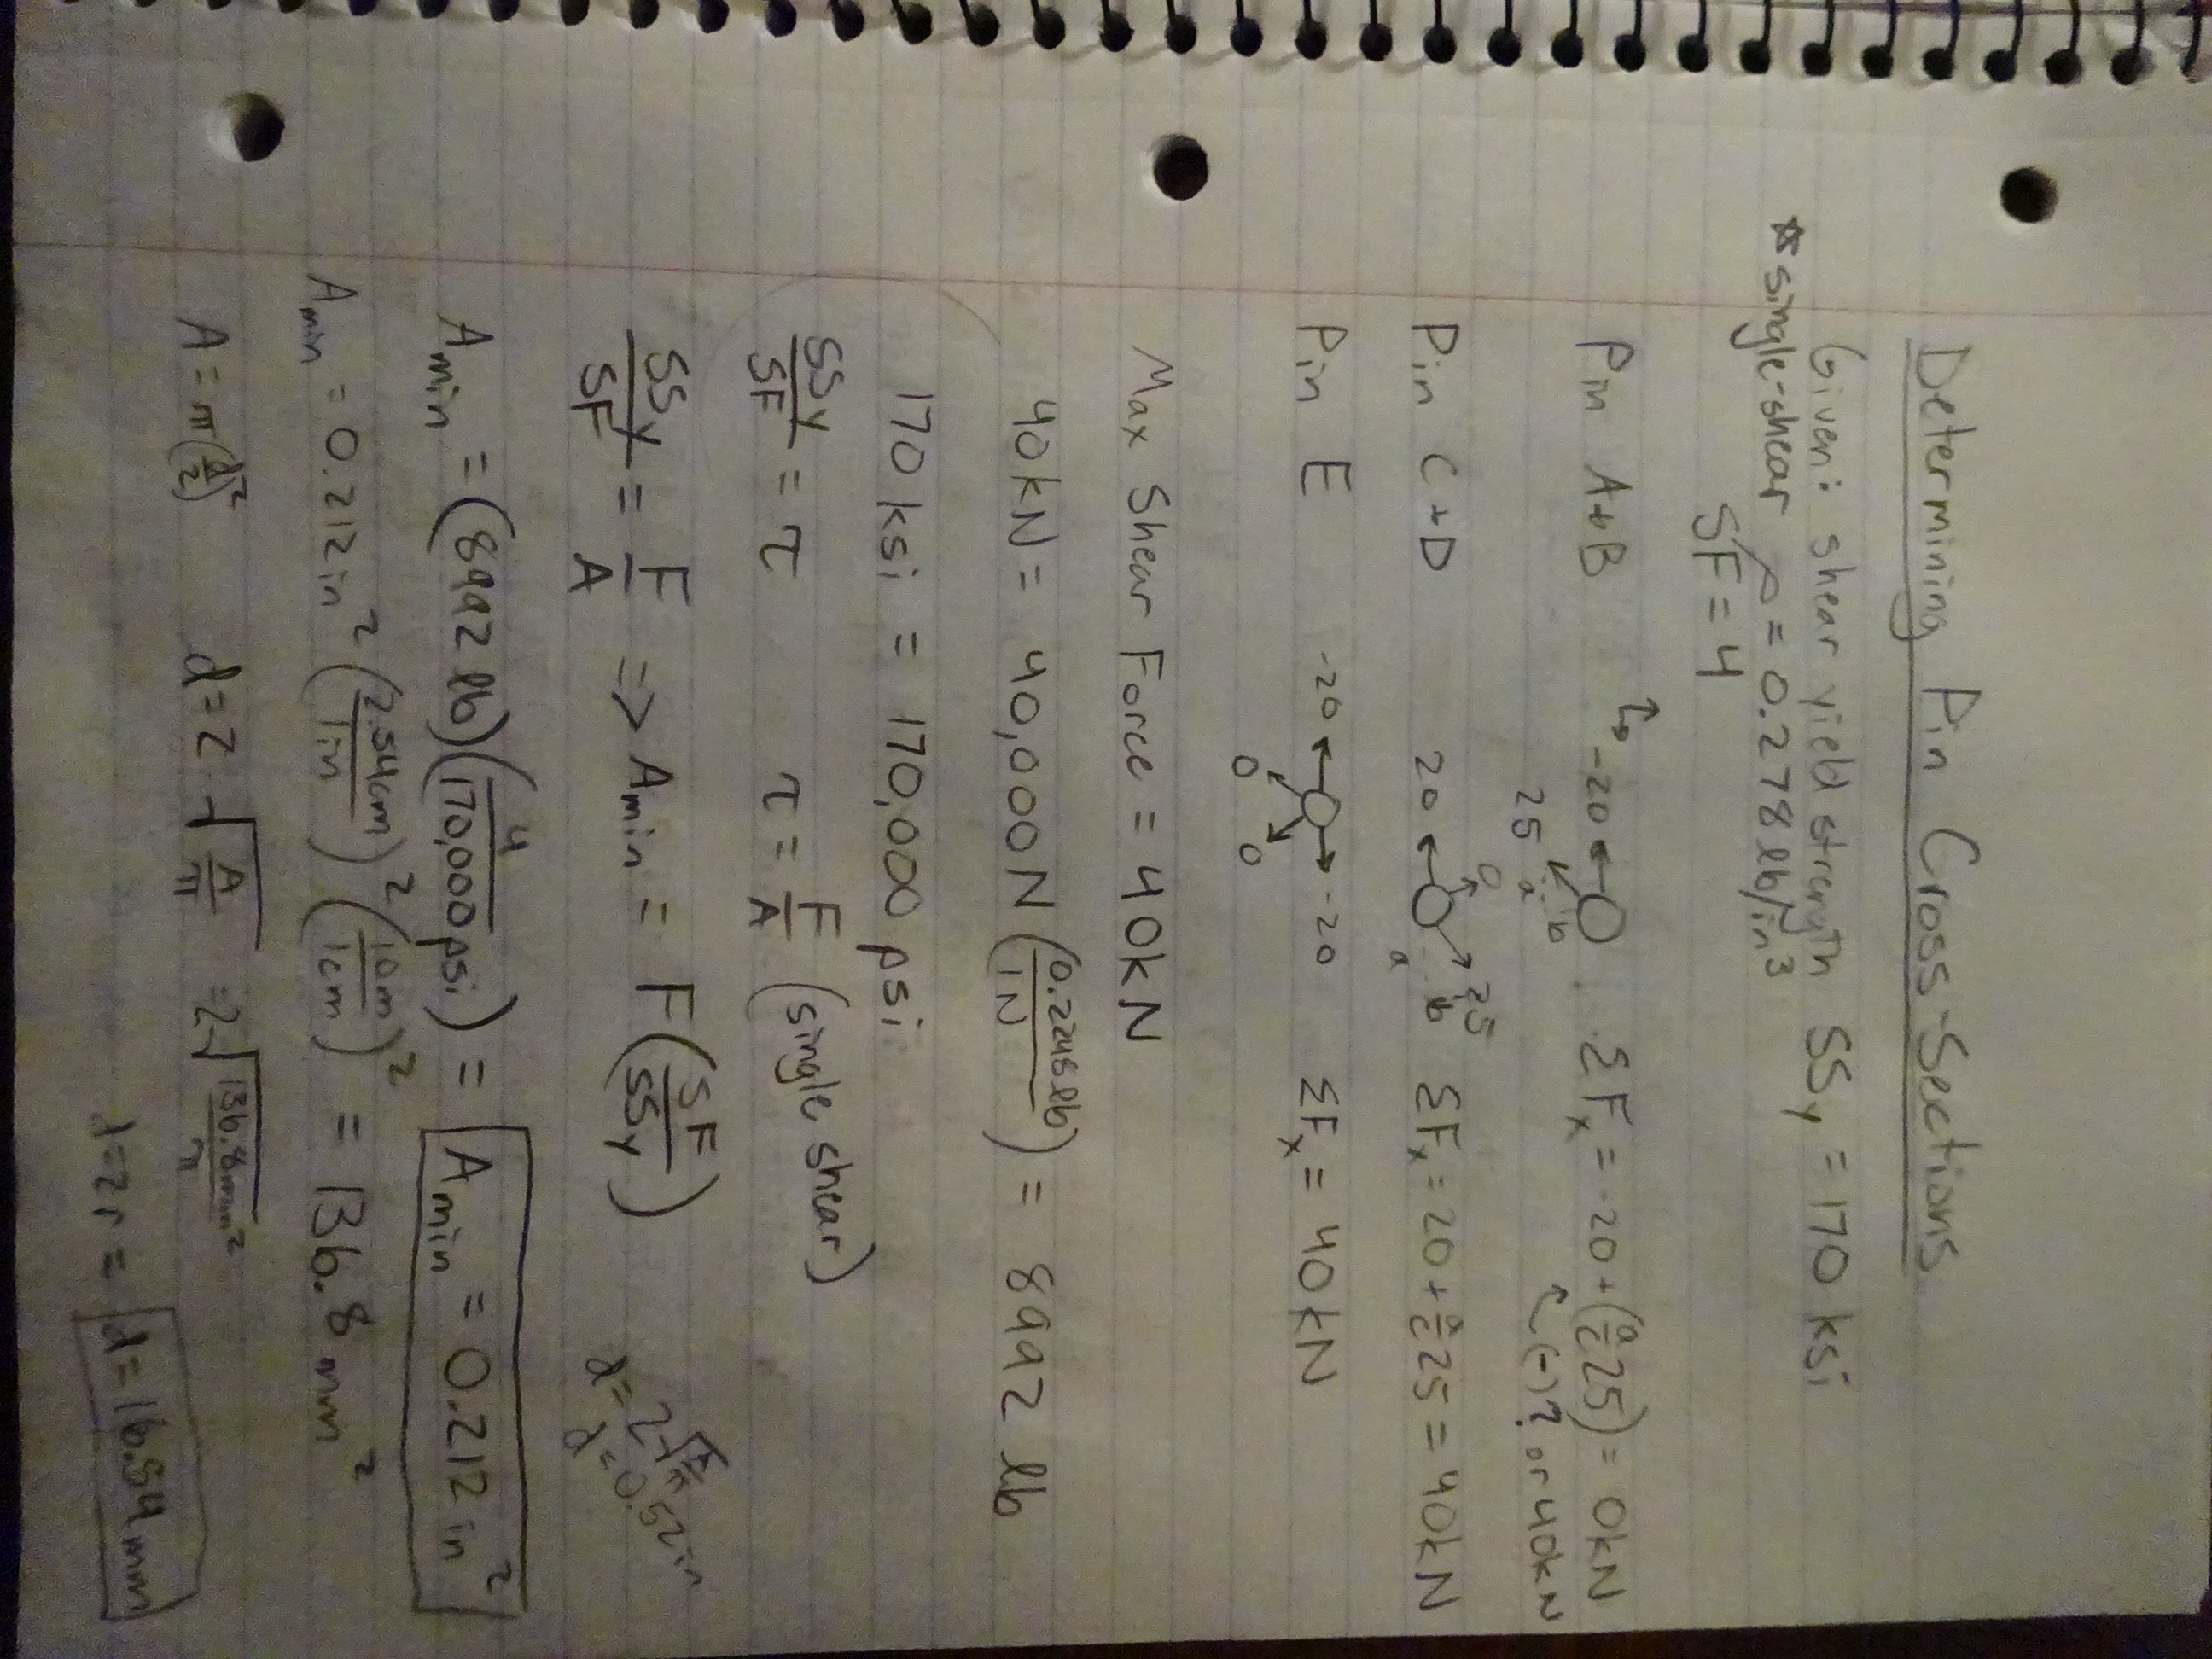 Determining Pin Cross-Sections
Given: shear yield strength SSy = 170 ksi
*single-shear ρ = 0.278 lb/in³
SF = 4
Pin A+B -20 25 a b ΣFx = -20 + (a/c 25) = 0kN
(-)? or 40kN
Pin C+D 20 0 25 a b ΣFx = 20 + a/c 25 = 40kN
Pin E -20 -20 0 0 ΣFx = 40kN
Max Shear Force = 40kN
40kN = 40,000N (0.2248 lb / 1N) = 8992 lb
170 ksi = 170,000 psi
SSy/SF = τ τ = F/A (single shear)
SSy/SF = F/A => Amin = F(SF/SSy)
d = 2√(A/π)
d = 0.52 in
Amin = (8992 lb)(4/170,000 psi) = Amin = 0.212 in²
Amin = 0.212 in² (2.54cm/1in)² (10m/1cm)² = 136.8 mm²
A = π(d/2)² d = 2·√(A/π) = 2√(136.8mm²/π)
d = 2r = d = 16.54 mm